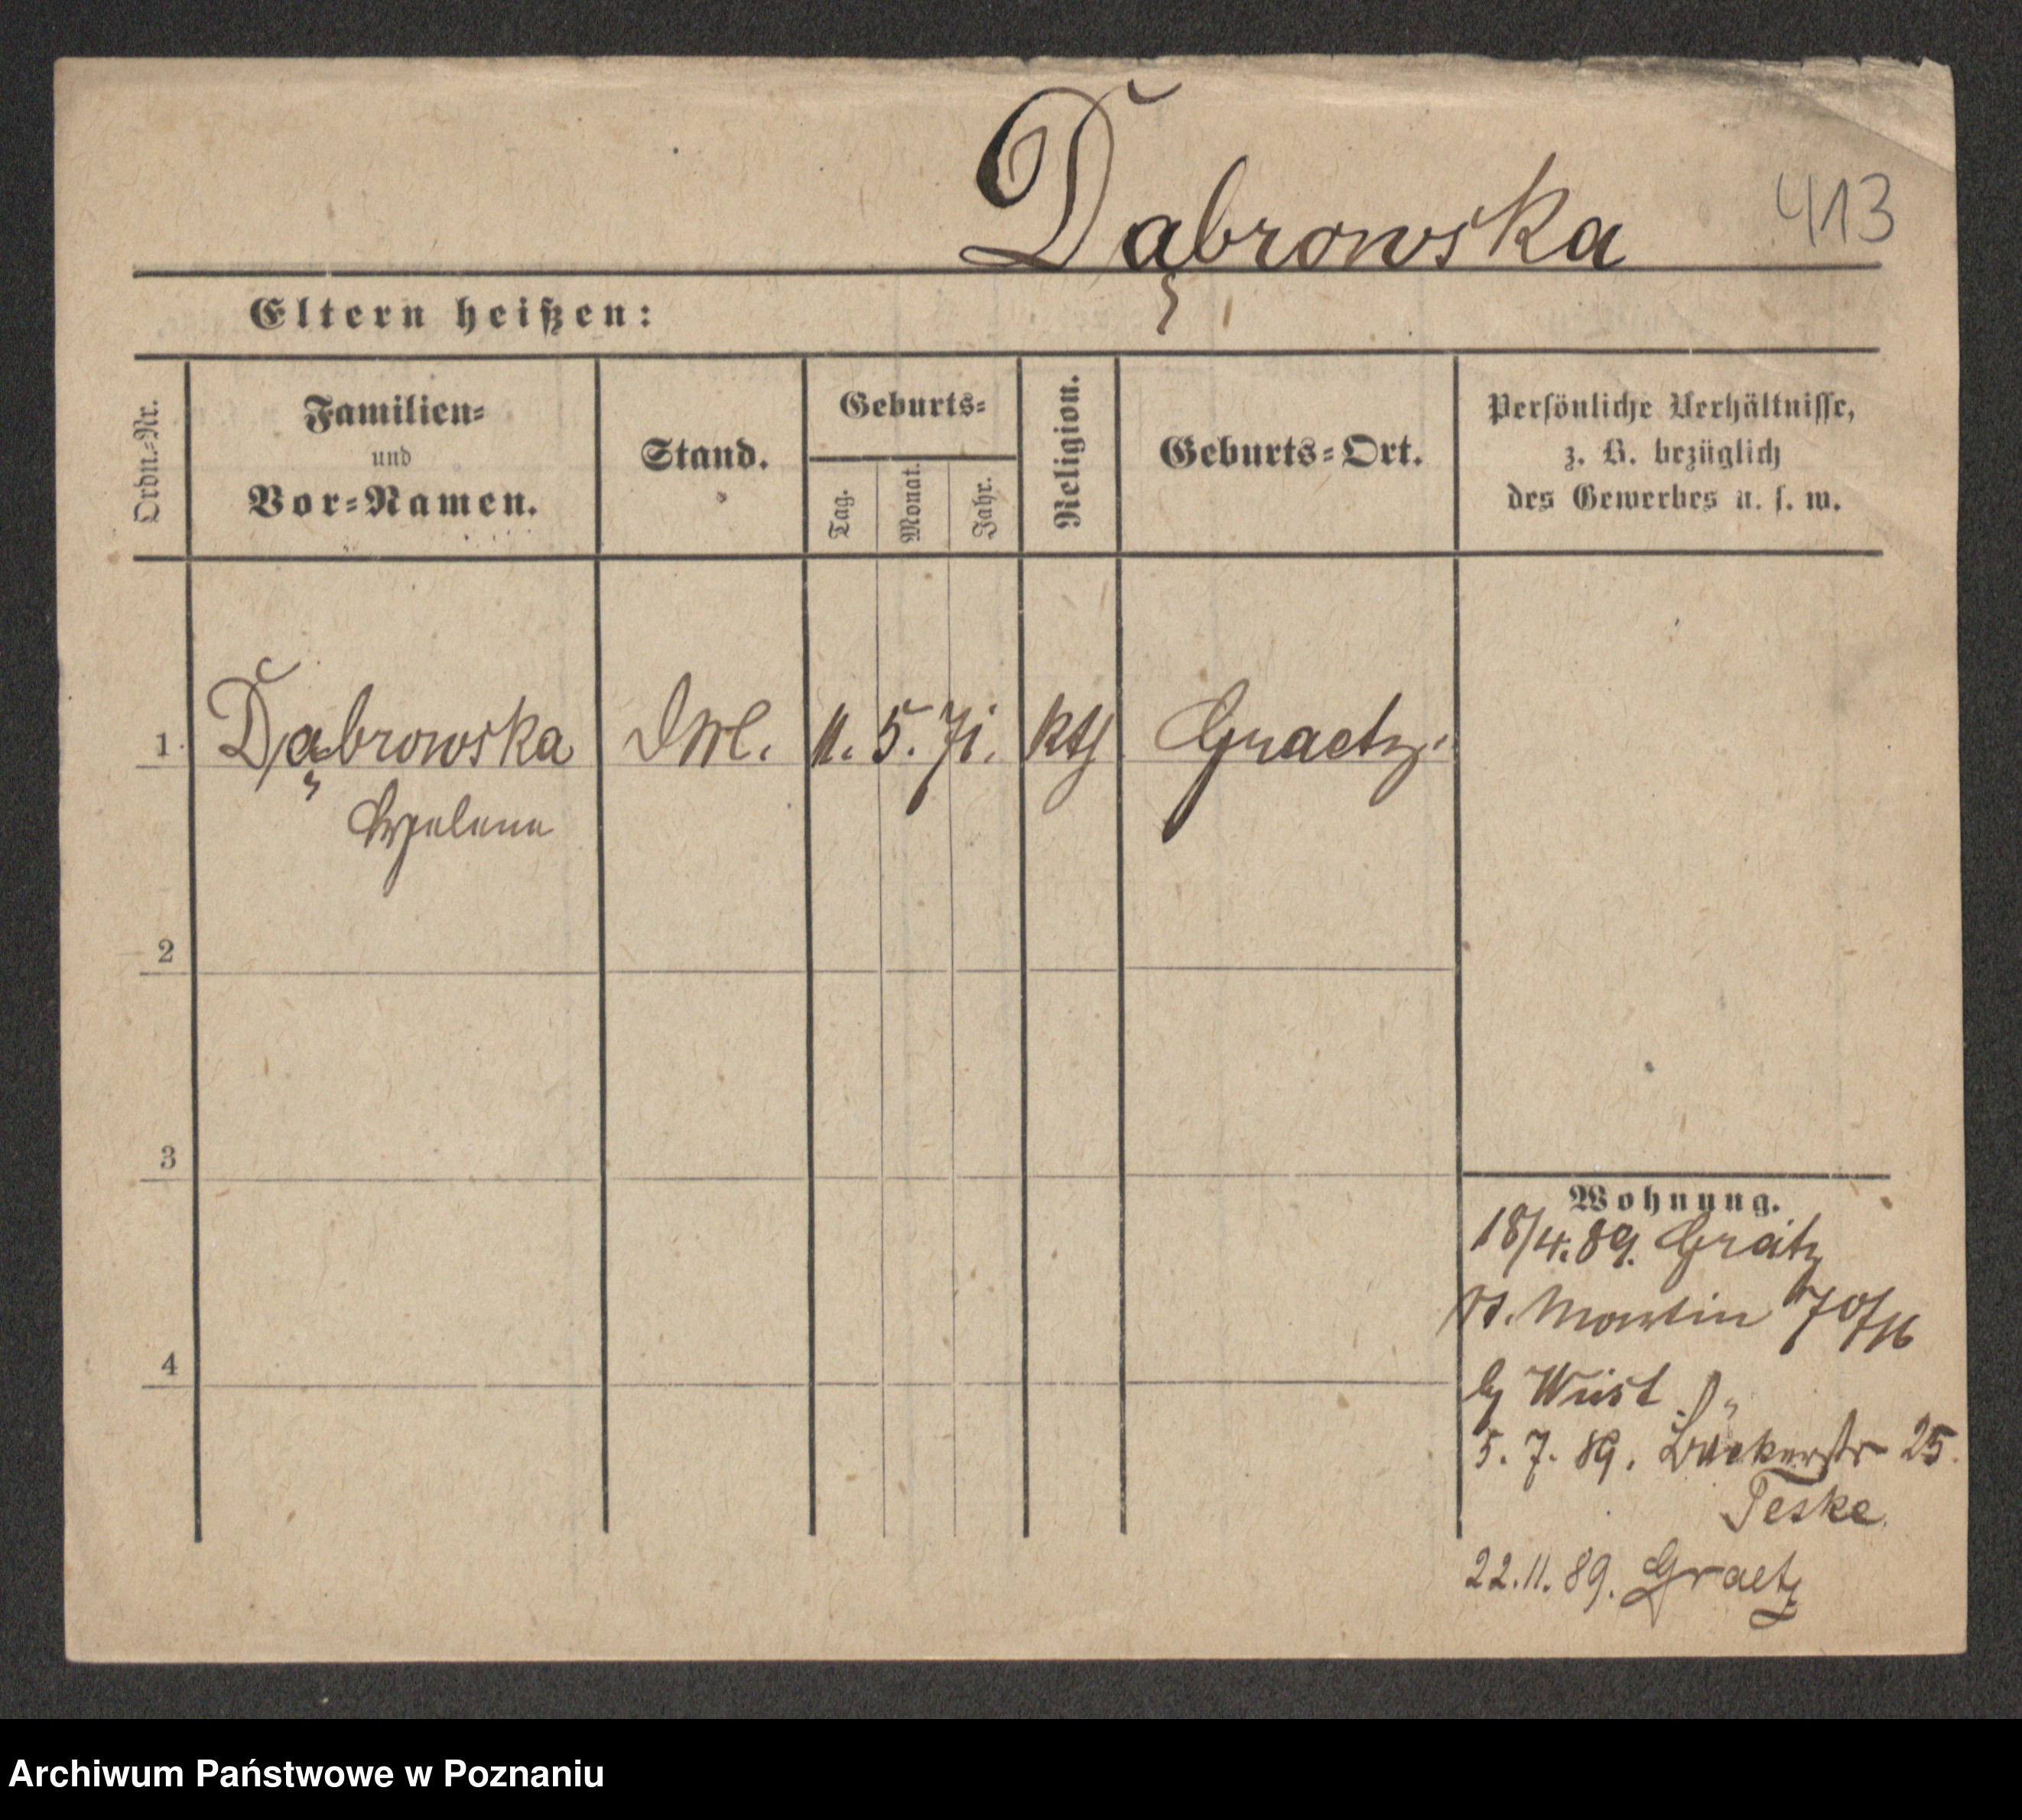 Dąbrowska
413
Eltern heißen:
Ordn.-Nr.
Familien-
und
Vor-Namen.
Stand.
Geburts-
Tag.
Monat.
Jahr.
Religion.
Geburts-Ort.
Persönliche Verhältnisse,
z. B. bezüglich
des Gewerbes u. s. w.
1 Dąbrowska 11. 5. 71. kth Graetz.
2
3
4
Wohnung.
18/4.89. Graitz
St. Martin 70/
b/ Wüst
5. 7. 89. Bäckerstr 25.
Teske
22.11.89. Graetz
Archiwum Państwowe w Poznaniu